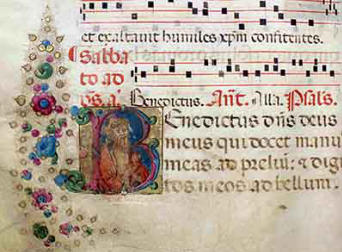 et exaltauit humiles xpm confitentes.
Sabba
to ad
ūs. a. Benedictus. Añt. Alla. Psals.
Benedictus dñs deus
meus qui docet manu
meas ad preliū: & digi
tos meos ad bellum.